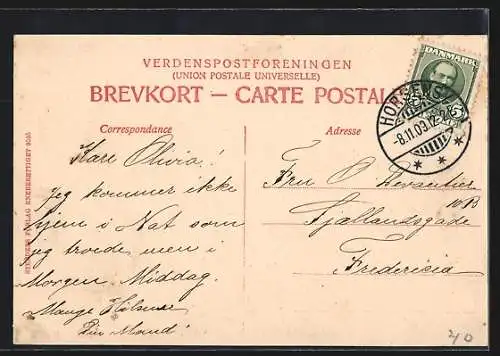 VERDENSPOSTFORENINGEN
(UNION POSTALE UNIVERSELLE)
BREVKORT — CARTE POSTALE
DANMARK
5
HORSENS
-8.11.09. 12-2
Correspondance
Adresse
Kære Olivia!
Jeg kommer ikke
hjem i Nat som
jeg troede, men i
Morgen Middag.
Mange Hilsner
Din Mand
Fru O Levantier
Sjællandsgade
Fredericia
ENEBERETTIGET
40